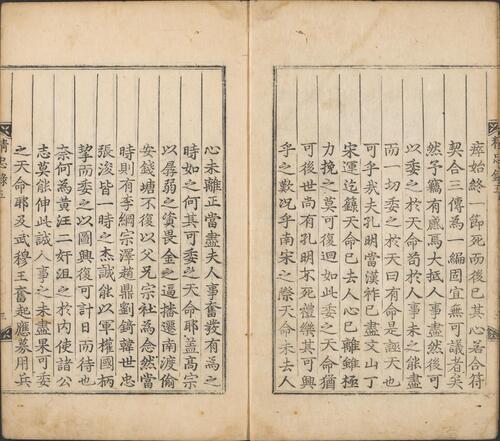 瘁始終一節死而後已其心若合符
契合三傳為一編固宜無可議者矣
然予竊有感焉大抵人事盡然後可
以委之於天命苟於人事未之能盡
而一切委之於天曰有命是誣天也
可乎我夫孔明當漢祚已盡文山丁
宋運迄籙天命已去人心已離雖極
力挽之莫可復迴如此委之天命猶
可後世尚有孔明不死禮樂其可興
乎之歎况乎南宋之際天命未去人
心未離正當盡夫人事奮發有為之
時如之何其可委之天命耶蓋高宗
以孱弱之資畏金之逼播遷南渡偷
安錢塘不復以父兄宗社為念然當
時則有李綱宗澤趙鼎劉錡韓世忠
張浚皆一時之杰誠能以軍權國柄
挈而委之以圖興復可計日而待也
奈何為黃汪二奸沮之於內使諸公
志莫能伸此誠人事之未盡果可委
之天命耶及武穆王奮起應募用兵
精忠錄
三